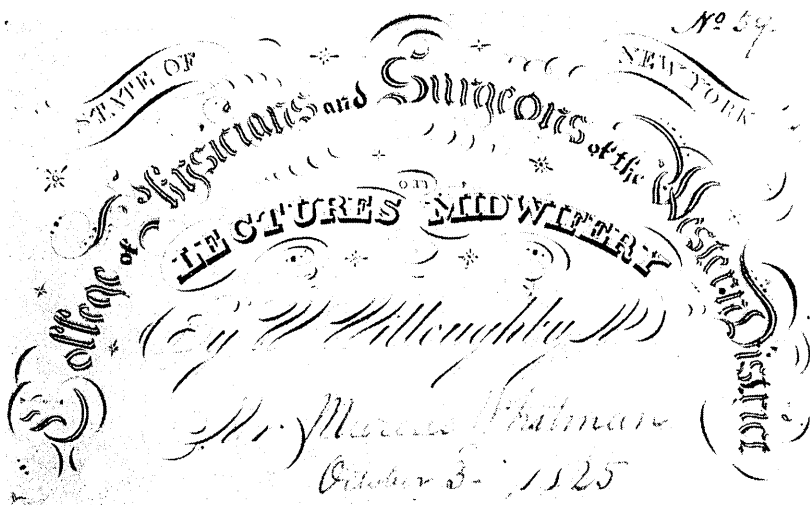 No 59.
STATE OF NEW YORK
College of Physicians and Surgeons of the Western District
LECTURES on MIDWIFERY
By W Willoughby M D
Mr. Marcus Whitman
October 3 - 1825